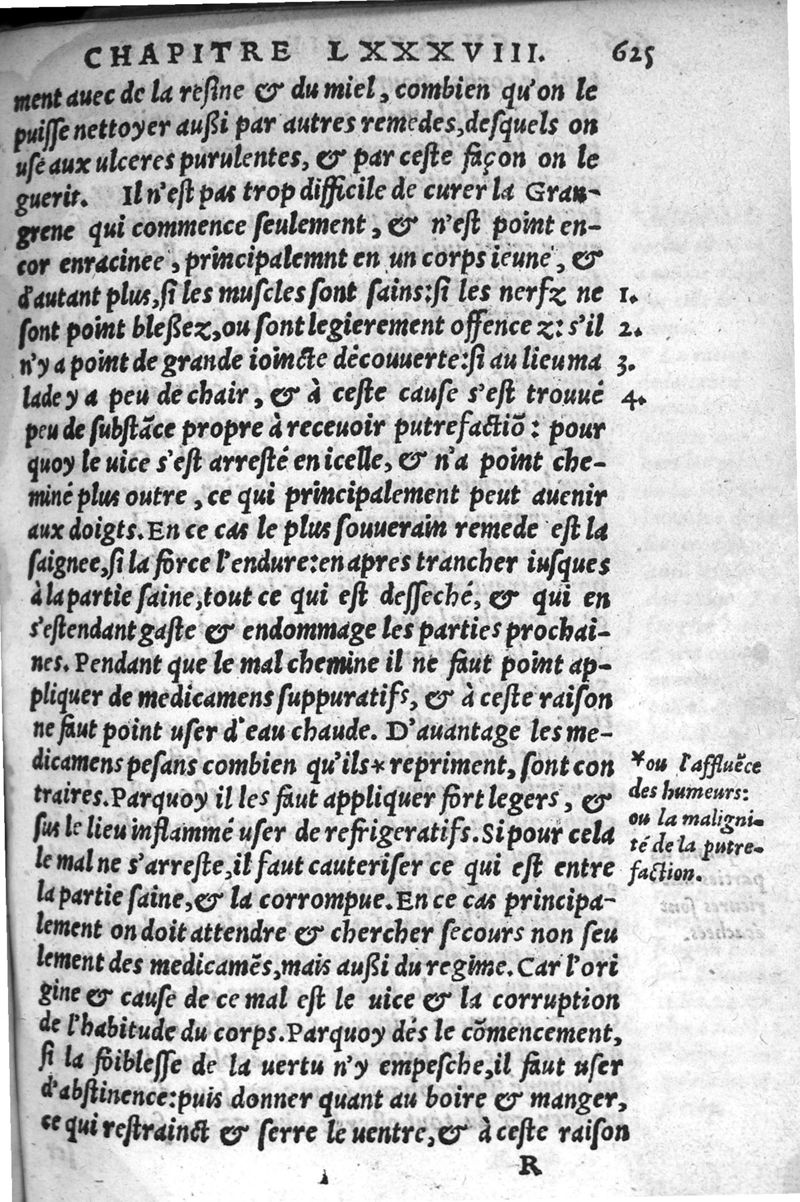 CHAPITRE LXXXVIII. 625
ment auec de la resine & du miel, combien qu'on le
puisse nettoyer außi par autres remedes, desquels on
use aux ulceres purulentes, & par ceste façon on le
guerit. Il n'est pas trop difficile de curer la Gran-
grene qui commence seulement, & n'est point en-
cor enracinee, principalemnt en un corps ieune, &
d'autant plus, si les muscles sont sains: si les nerfz ne 1.
sont point bleßez, ou sont legierement offence z: s'il 2.
n'y a point de grande ioincte découuerte: si au lieu ma 3.
lade y a peu de chair, & à ceste cause s'est trouué 4.
peu de substãce propre à receuoir putrefactiõ: pour
quoy le uice s'est arresté en icelle, & n'a point che-
miné plus outre, ce qui principalement peut auenir
aux doigts. En ce cas le plus souuerain remede est la
saignee, si la force l'endure: en apres trancher iusques
à la partie saine, tout ce qui est desseché, & qui en
s'estendant gaste & endommage les parties prochai-
nes. Pendant que le mal chemine il ne faut point ap-
pliquer de medicamens suppuratifs, & à ceste raison
ne faut point user d'eau chaude. D'auantage les me-
dicamens pesans combien qu'ils* repriment, sont con
traires. Parquoy il les faut appliquer fort legers, &
sus le lieu inflammé user de refrigeratifs. Si pour cela
le mal ne s'arreste, il faut cauteriser ce qui est entre
la partie saine, & la corrompue. En ce cas principa-
lement on doit attendre & chercher secours non seu
lement des medicamẽs, mais außi du regime. Car l'ori
gine & cause de ce mal est le uice & la corruption
de l'habitude du corps. Parquoy dés le cõmencement,
si la foiblesse de la uertu n'y empesche, il faut user
d'abstinence: puis donner quant au boire & manger,
ce qui restrainct & serre le uentre, & à ceste raison
R
*ou l'affluẽce
des humeurs:
ou la maligni-
té de la putre-
faction.